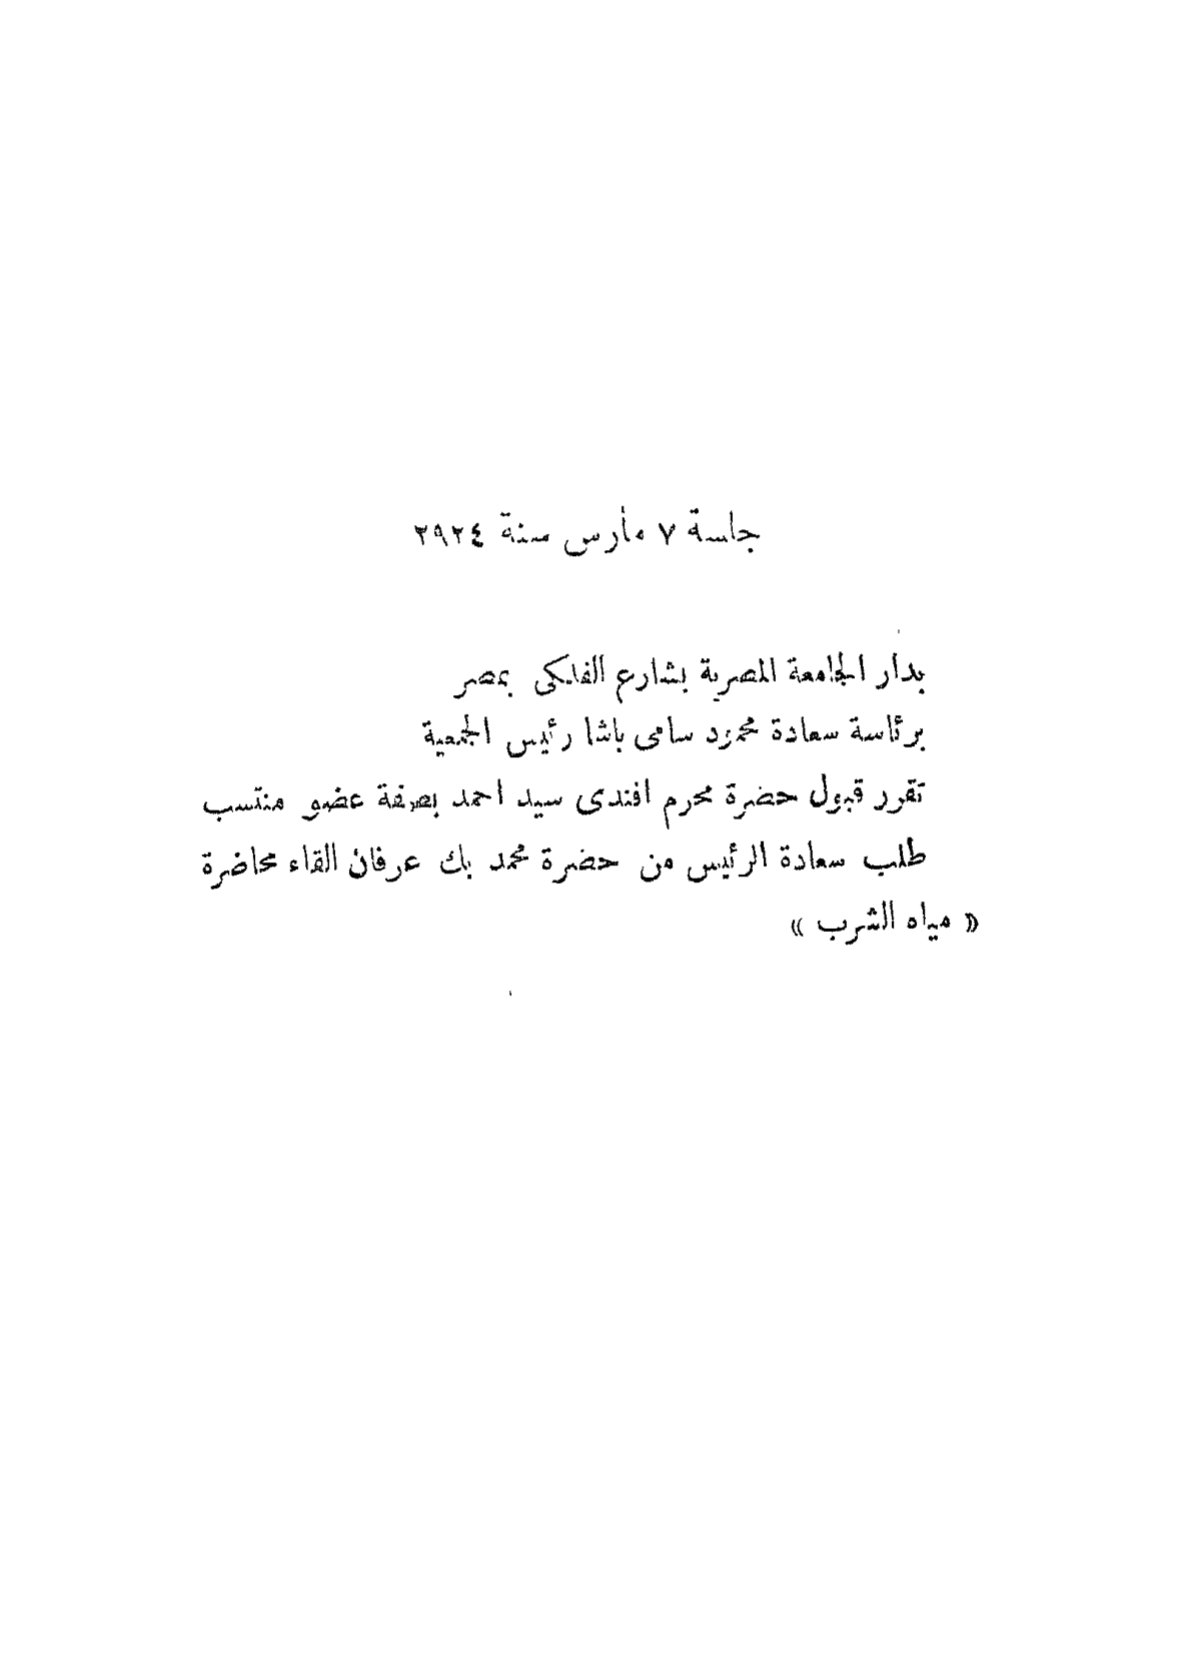 جلسة ٧ مارس سنة ٢٩٢٤
بدار الجامعة المصرية بشارع الفلكى بمصر
برئاسة سعادة محمود سامى باشا رئيس الجمعية
تقرر قبول حضرة محرم افندى سيد احمد بصفة عضو منتسب
طلب سعادة الرئيس من حضرة محمد بك عرفان القاء محاضرة
« مياه الشرب »